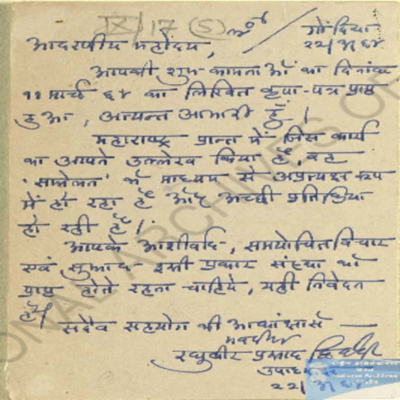 IX/17 (S)
गोंदिया
22/3/64
आदरणीय महोदय,
आपकी शुभ-कामनाओं का दिनांक
११ मार्च ६४ का लिखित कृपा-पत्र प्राप्त
हुआ, अत्यन्त आभारी हूँ।
महाराष्ट्र प्रान्त में जिस कार्य
का आपने उल्लेख किया है, वह
'सम्मेलन' के माध्यम से अप्रत्यक्ष रूप
में हो रहा है और अच्छी प्रतिक्रिया
हो रही है।
आपके आशीर्वाद, समयोचित विचार
एवं सुझाव इसी प्रकार संस्था को
प्राप्त होते रहना चाहिये, यही निवेदन
है।
सदैव सहयोग की आकांक्षा से —
भवदीय
रघुवीर प्रसाद
22/3/64